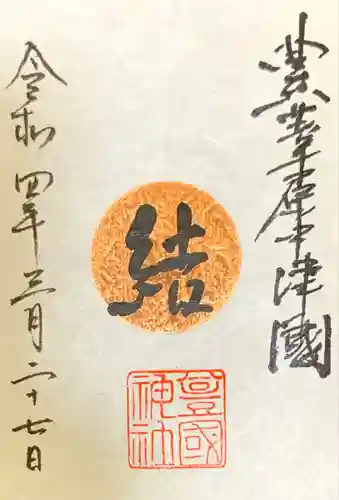 豊葦原中津國
結
豊國
神社
令和四年三月二十七日